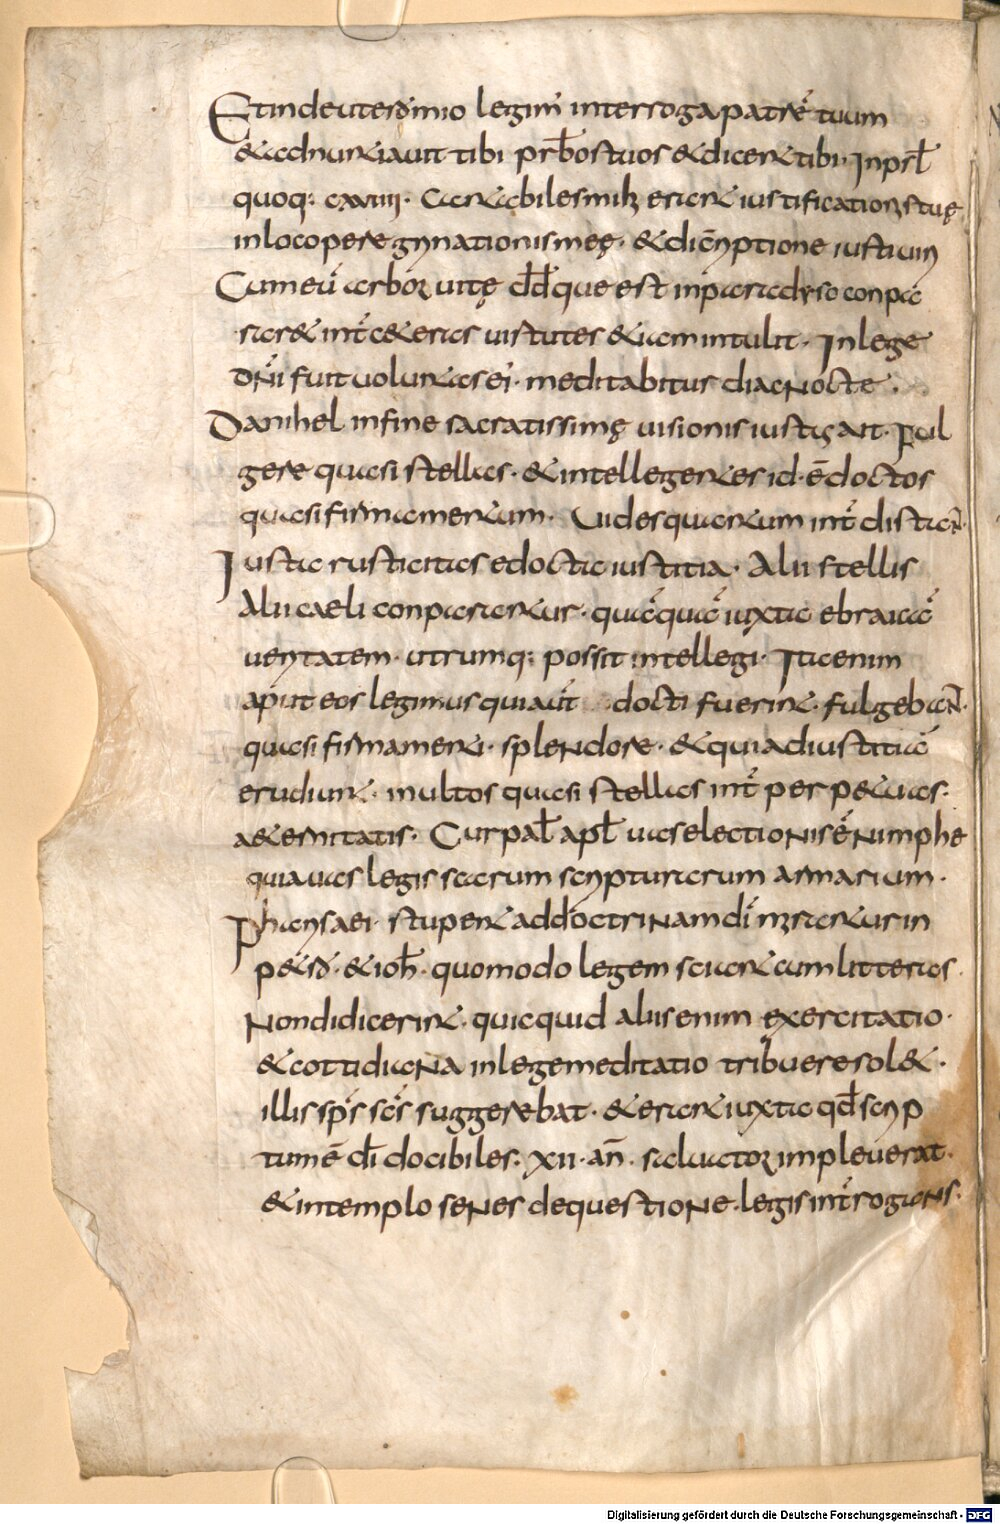 Et in deuteronmio legim̄ interroga patrē tuum
& adnuntiauit tibi prb̄os tuos & dicent tibi· In psl̄
quoq: cxviii· Cantabiles mihi erant iustificationes tuę
in loco peregrinationis meę· & discriptione iusti uiri
Cum eū arbori uitę dd̄ que est in paradyso conpa
rar& int̄ c&eras uirtutes & iam intulit· In lege
dn̄i fuit uoluntas ei· meditabitur diac nocte·
Danihel in fine sacratissimę uisionis iustos ait· Ful
gere quasi stellas· & intellegentes id· ē doctos
quasi firmamentum· Uides quantum int̄ distant
Iusta rusticitas e docta iustitia· Alii stellis
Alii caeli conparantur· quāquā iuxta ebraicā
ueritatem· utrumq: possit intellegi· Ita enim
aput eos legimus qui aut̄ docti fuerint· fulgebunt·
quasi firmamenti· splendore· & qui ad iustitiā
erudiunt· multos quasi stellas int̄ perp&uas·
a&ernitatis· Cur pal̄ apl̄ uas electionis ē Nimphe
quia uas legis sacrum scripturarum armarium·
Pharisaei· stupent ad doctrinam dn̄i mirantur in
p&ro· & ioh̄· quomodo legem sciant cum litteras·
Non didicerint· quicquid aliis enim exercitatio·
& cottidiana in lege meditatio tribuere sol&·
illis sp̄s sc̄s suggerebat· & erant iuxta qd̄ scrip
tum ē dī docibiles: xii· an̄· saluator impleuerat·
& in templo senes de questione· legis int̄rogans·
Digitalisierung gefördert durch die Deutsche Forschungsgemeinschaft - DFG